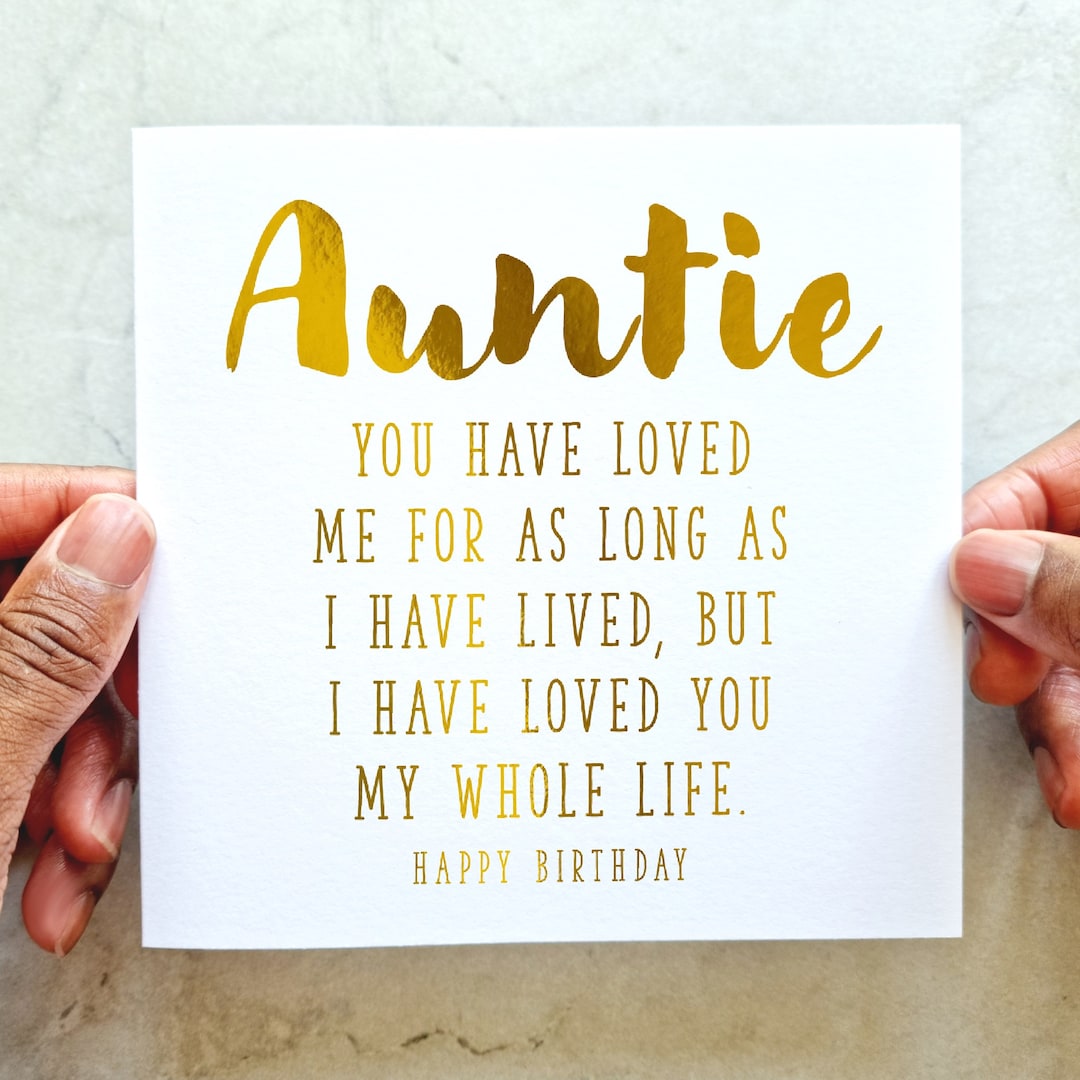 Auntie
YOU HAVE LOVED
ME FOR AS LONG AS
I HAVE LIVED, BUT
I HAVE LOVED YOU
MY WHOLE LIFE.
HAPPY BIRTHDAY